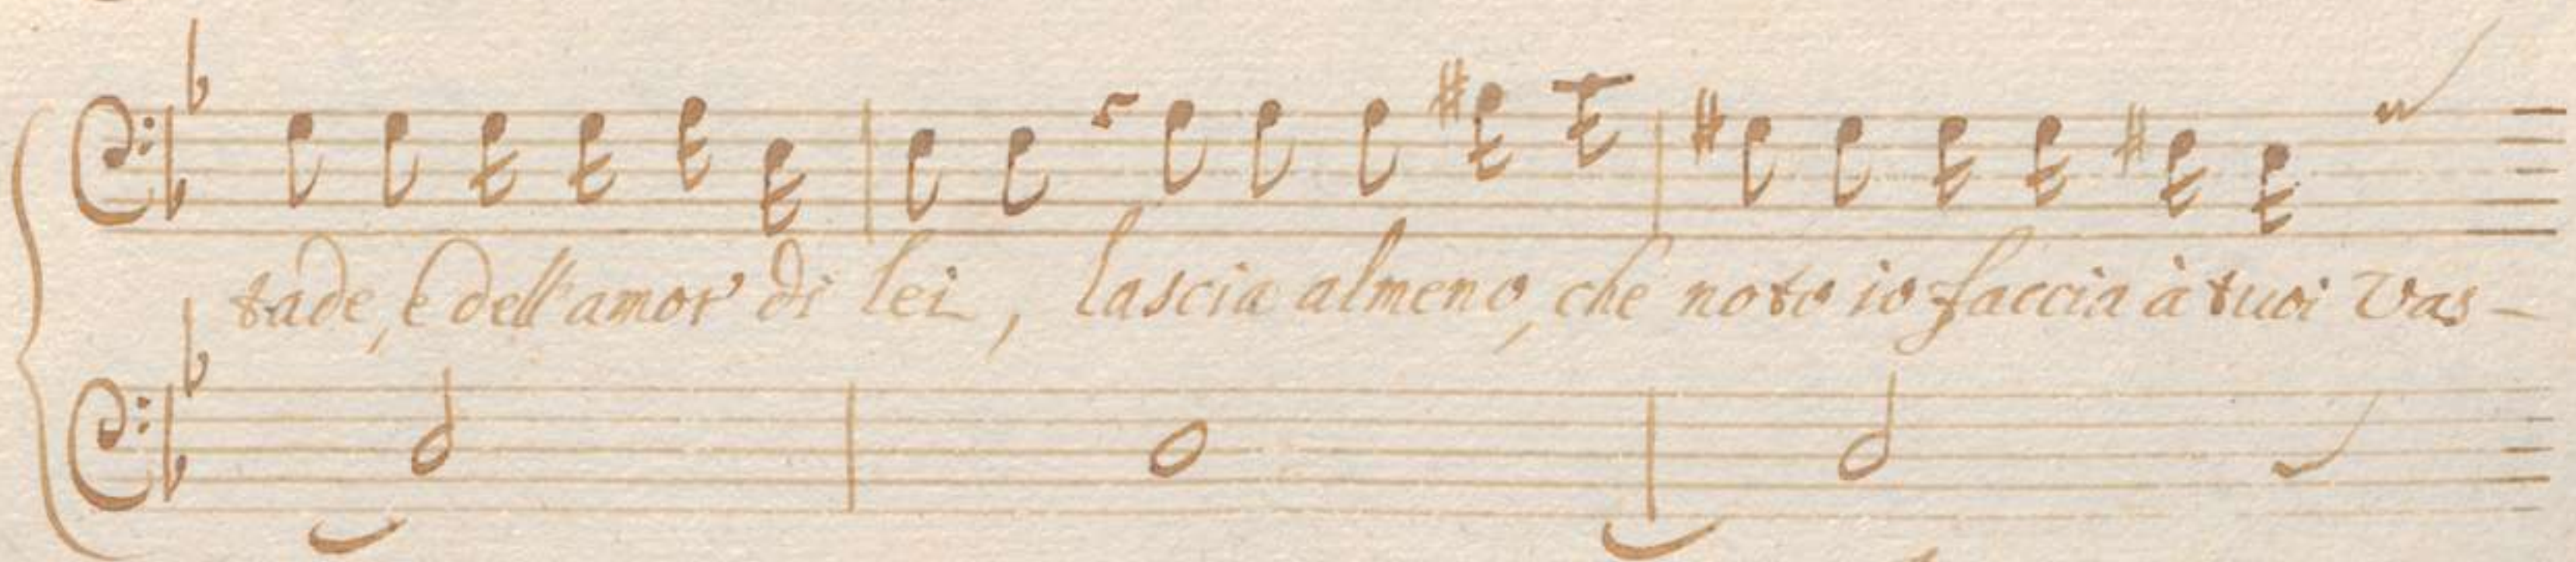 tade, e dell'amor di lei, lascia almeno, che noto io faccia à tuoi Vas-